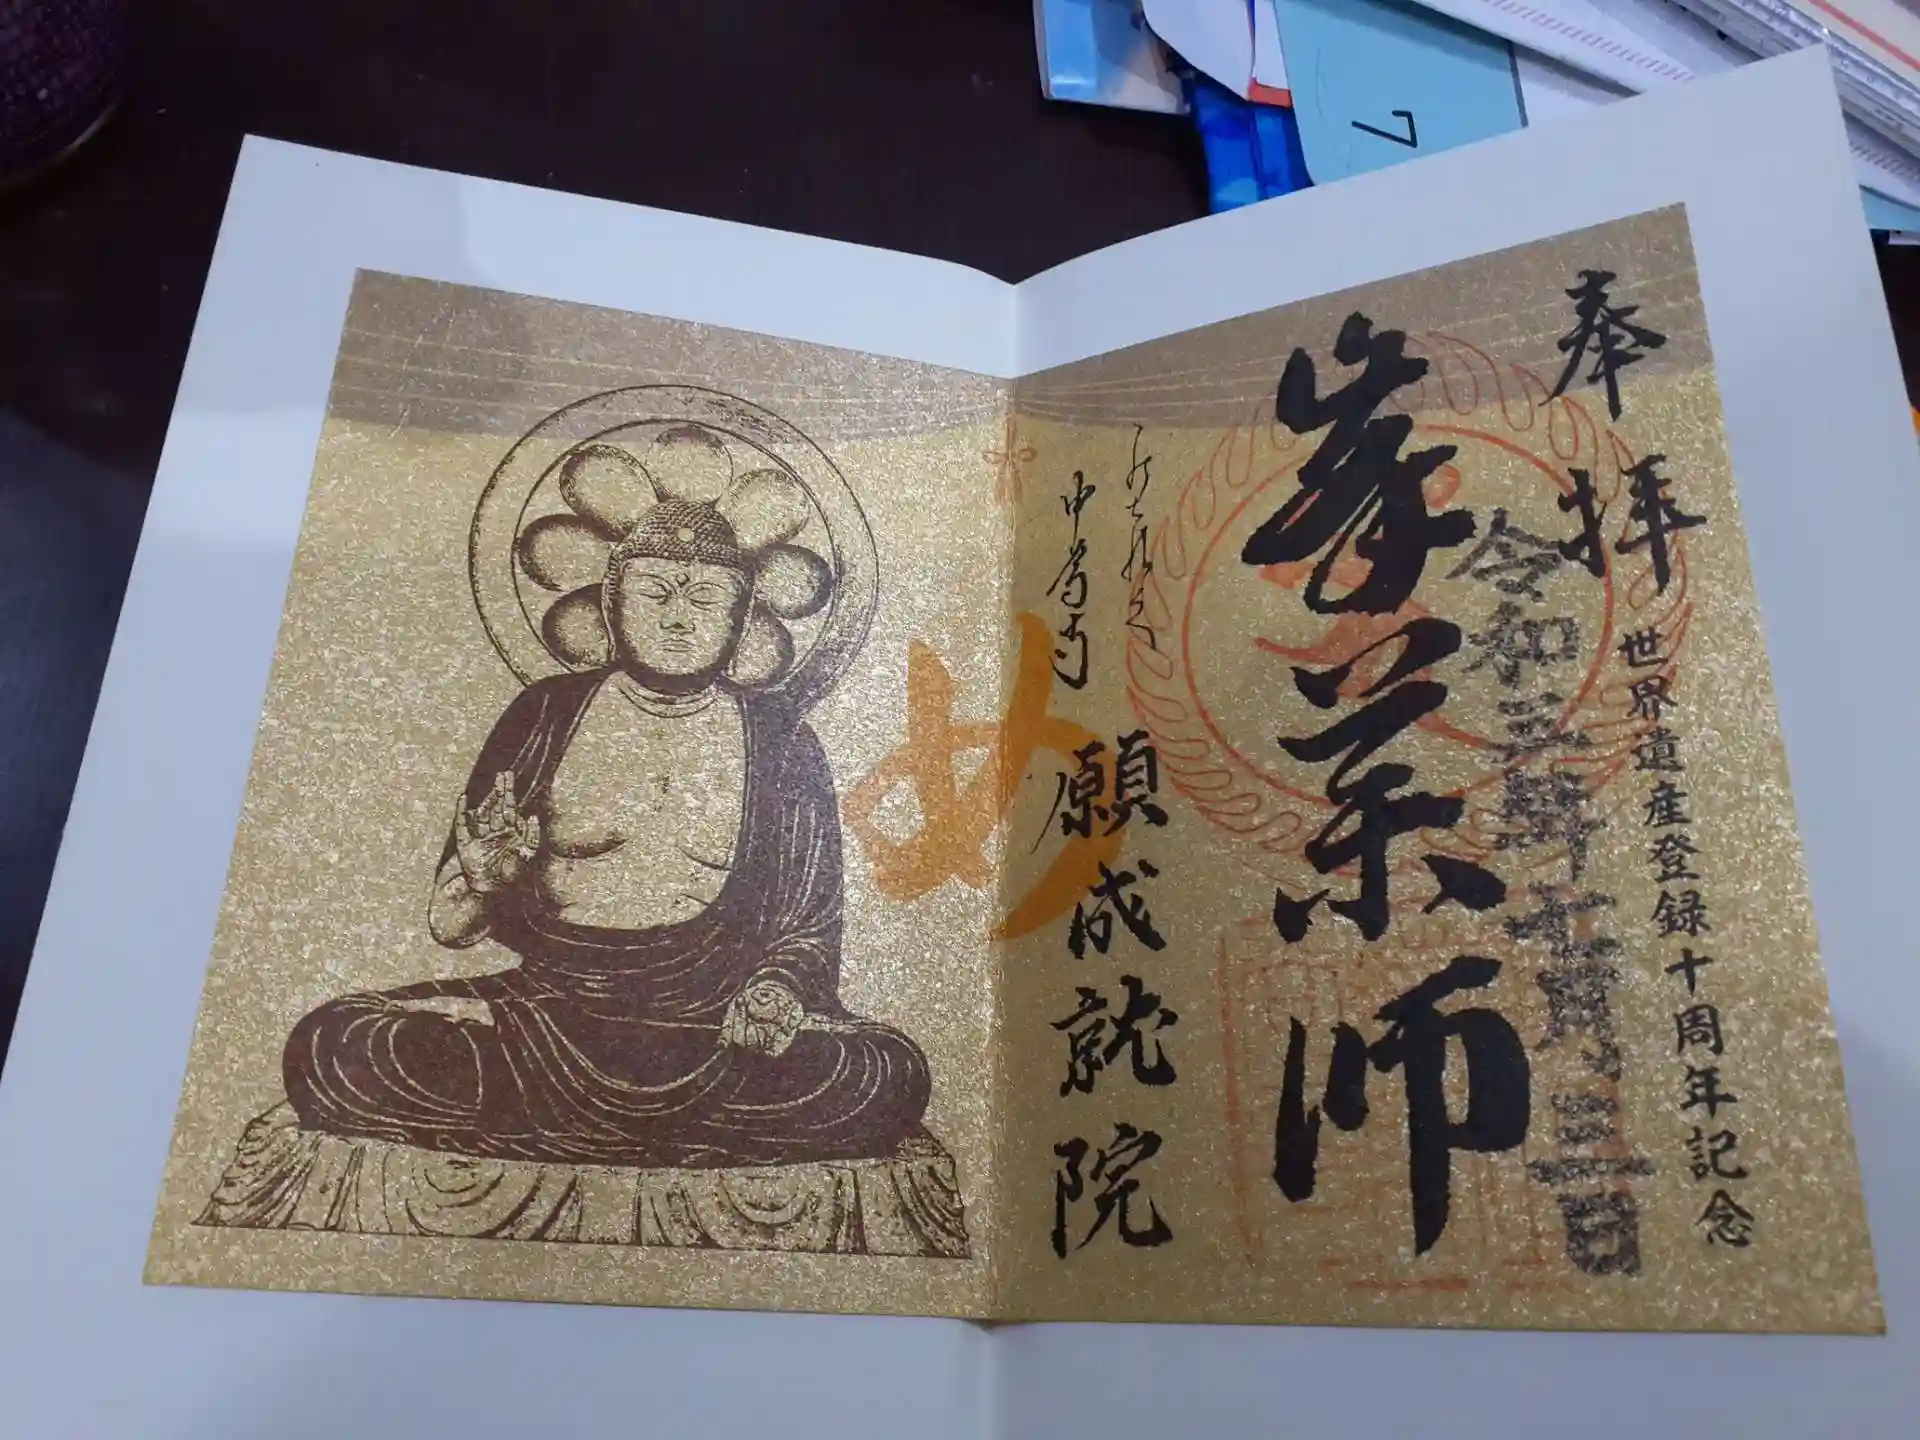 奉拝
世界遺産登録十周年記念
令和三年十一月二十三日
峯薬師
中尊寺
願成就院